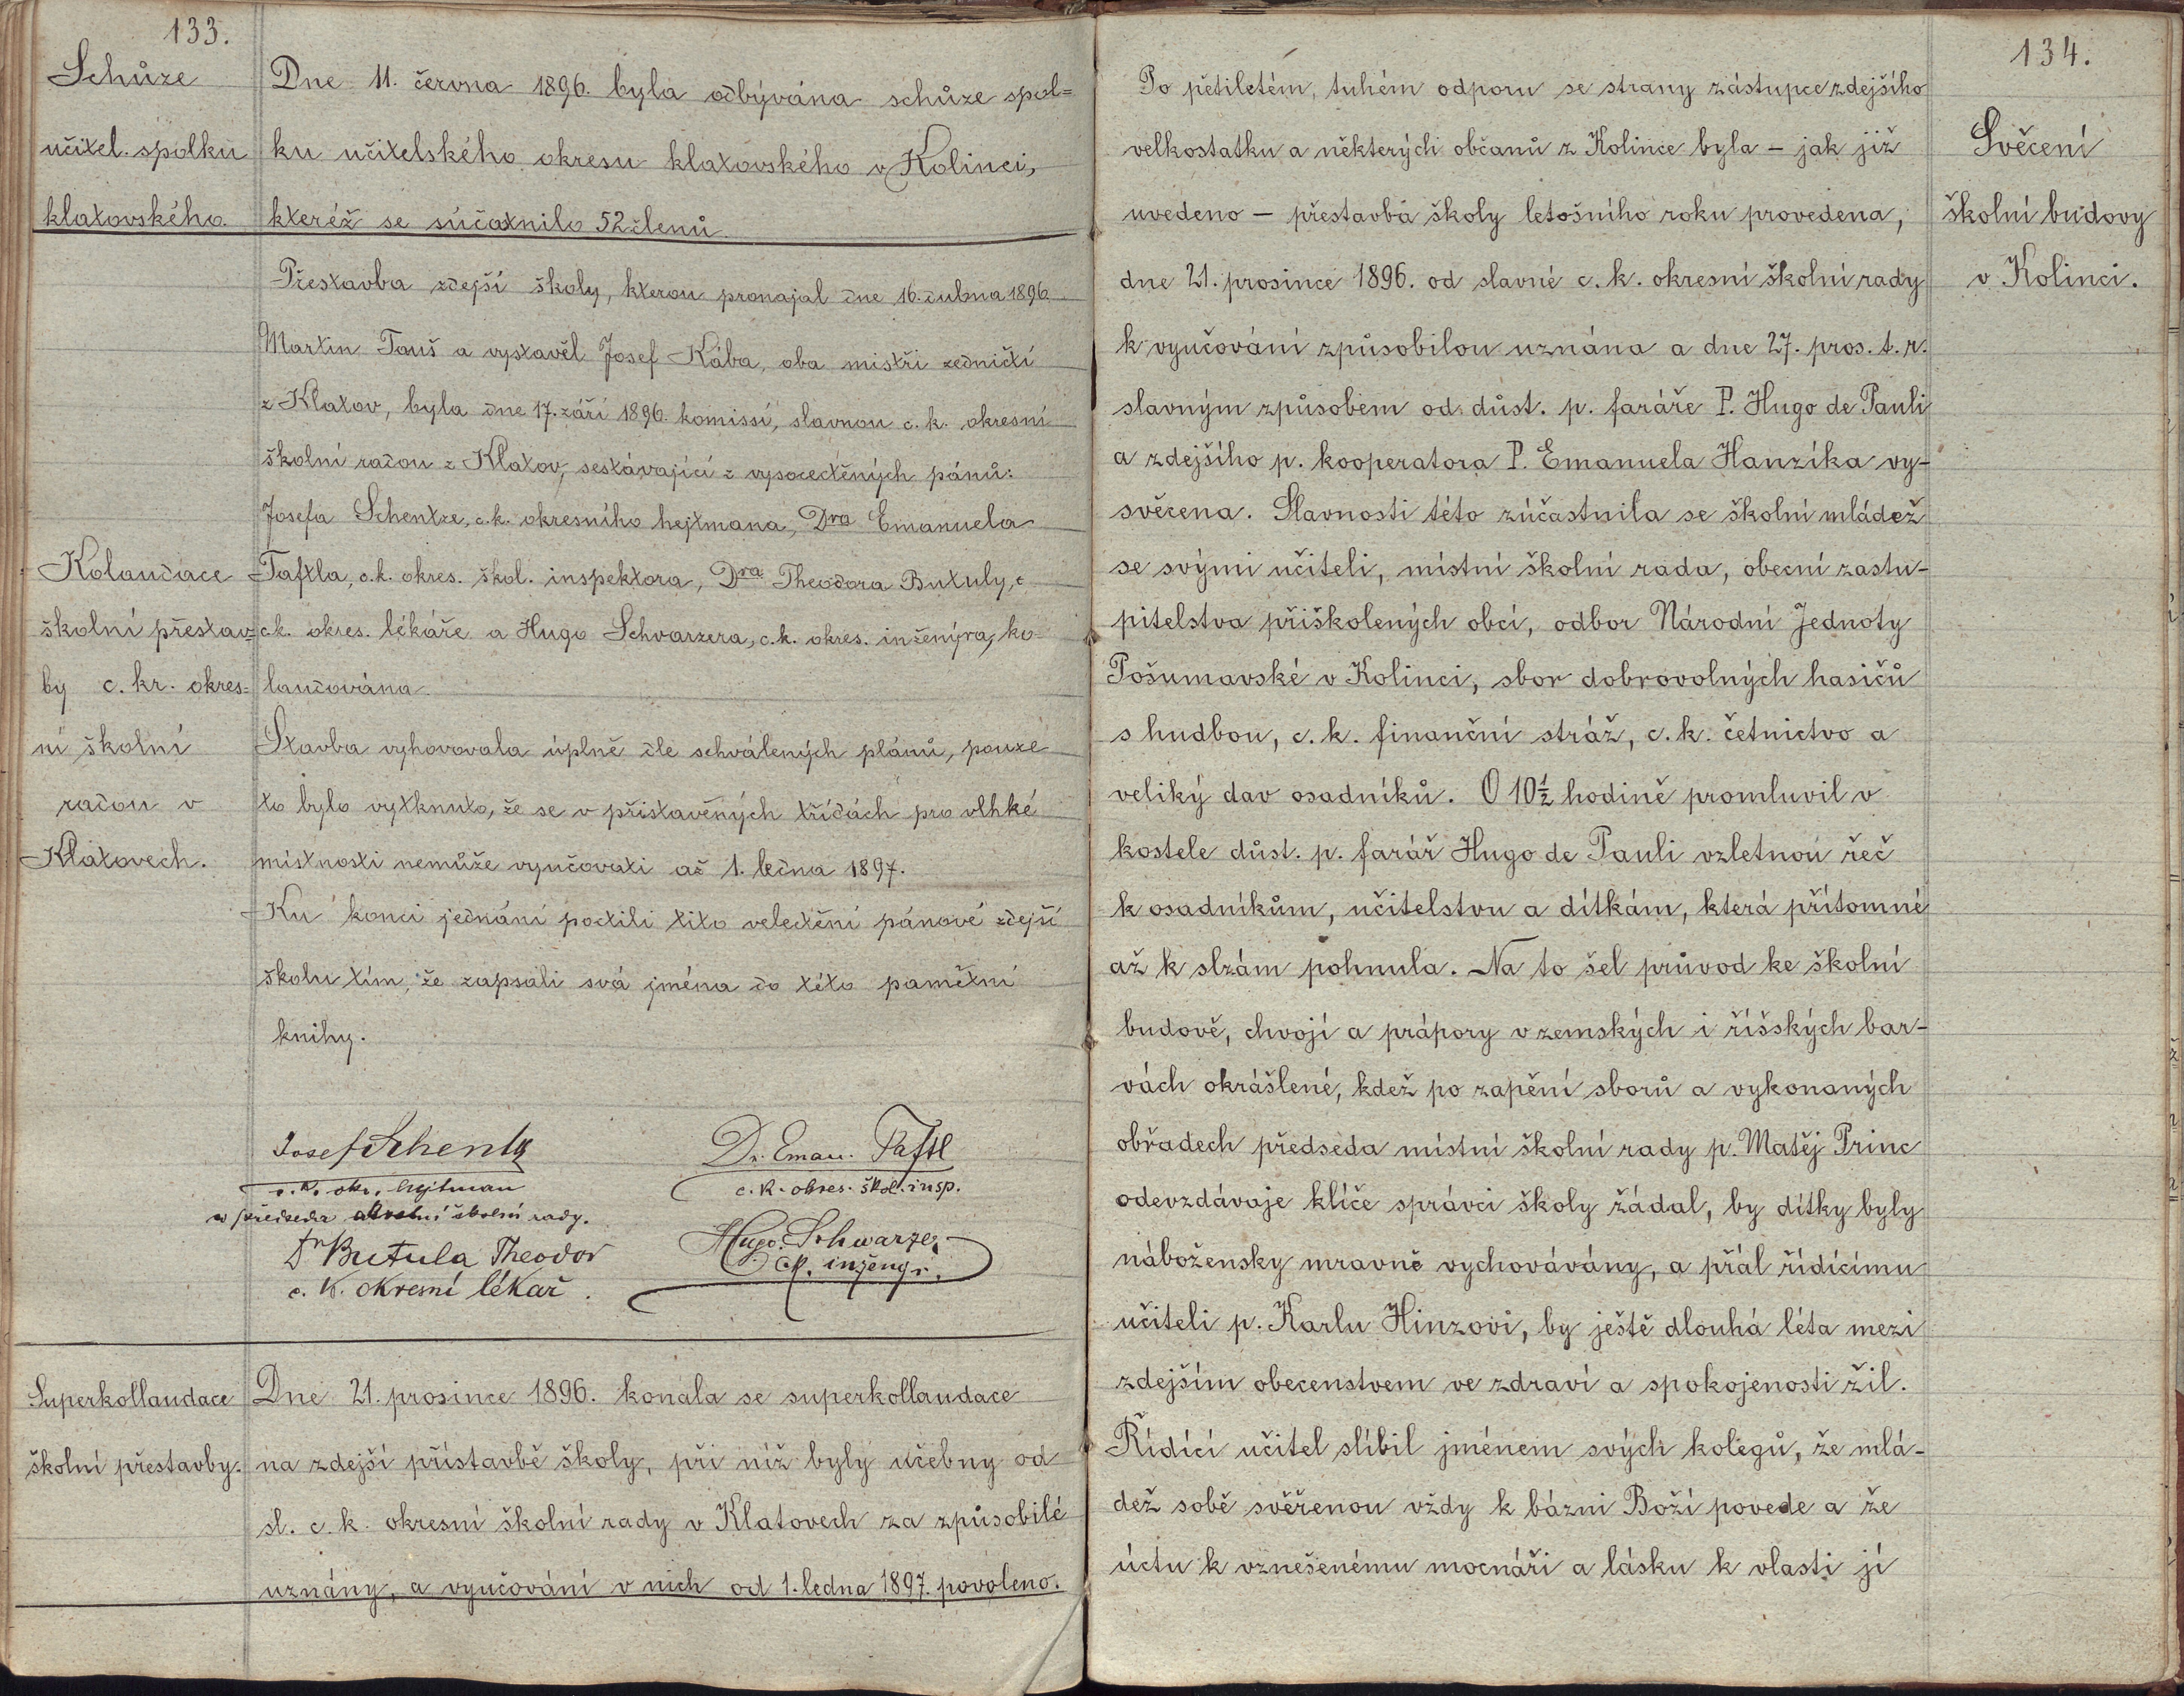 133.
Schůze
učitel. spolku
klatovského.
Dne 11. června 1896. byla odbývána schůze spol=
ku učitelského okresu klatovského v Kolinci,
kteréž se súčatnilo 52 členů.
Přestavba zdejší školy, kterou pronajal dne 16. dubna 1896.
Martin Tauš a vystavěl Josef Kába, oba mistři zedničtí
z Klatov, byla dne 17. září 1896. komissí, slavnou c. k. okresní
školní radou z Klatov, sestávající z vysocectěných pánů:
Josefa Schentze, c. k. okresního hejtmana, Dra Emanuela
Kolaudace
školní přestav=
by c. kr. okres=
ní školní
radou v
Klatovech.
Taftla, c. k. okres. škol. inspektora, Dra Theodora Butuly, c
c. k. okres. lékáře a Hugo Schvarzera, c. k. okres. inženýra, ko-
laudována.
Stavba vyhovovala úplně dle schválených plánů, pouze
to bylo vytknuto, že se v přistavěných třídách pro vlhké
místnosti nemůže vyučovati až 1. ledna 1897.
Ku konci jednání poctili tito velectění pánové zdejší
školu tím, že zapsali svá jména do této památní
knihy.
Josef Schentz
c. k. okr. hejtman
a předseda okresní školní rady.
Dr. Eman. Taftl
c. k. okres. škol. insp.
Dr Butula Theodor
c. k. okresní lékař.
Hugo Schwarzer
c. k. inženýr.
Superkollaudace
školní přestavby.
Dne 21. prosince 1896. konala se superkollaudace
na zdejší přístavbě školy, při níž byly učebny od
sl. c. k. okresní školní rady v Klatovech za způsobilé
uznány, a vyučování v nich od 1. ledna 1897. povoleno.
134.
Svěcení
školní budovy
v Kolinci.
Po pětiletém, tuhém odporu se strany zástupce zdejšího
velkostatku a některých občanů z Kolince byla – jak již
uvedeno – přestavba školy letošního roku provedena,
dne 21. prosince 1896. od slavné c. k. okresní školní rady
k vyučování způsobilou uznána a dne 27. pros. t. r.
slavným způsobem od důst. p. faráře P. Hugo de Pauli
a zdejšího p. kooperatora P. Emanuela Hanzíka vy-
svěcena. Slavnosti této zúčastnila se školní mládež
se svými učiteli, místní školní rada, obecní zastu-
pitelstva přiškolených obcí, odbor Národní Jednoty
Pošumavské v Kolinci, sbor dobrovolných hasičů
s hudbou, c. k. finanční stráž, c. k. četnictvo a
veliký dav osadníků. O 10½ hodině promluvil v
kostele důst. p. farář Hugo de Pauli vzletnou řeč
k osadníkům, učitelstvu a dítkám, která přítomné
až k slzám pohnula. Na to šel průvod ke školní
budově, chvojí a prápory v zemských i říšských bar-
vách okrášlené, kdež po zapění sborů a vykonaných
obřadech předseda místní školní rady p. Matěj Princ
odevzdávaje klíče správci školy žádal, by dítky byly
nábožensky mravně vychovávány, a přál řídícímu
učiteli p. Karlu Hinzovi, by ještě dlouhá léta mezi
zdejším obecenstvem ve zdraví a spokojenosti žil.
Řídící učitel slíbil jménem svých kolegů, že mlá-
dež sobě svěřenou vždy k bázni Boží povede a že
úctu k vznešenému mocnáři a lásku k vlasti jí